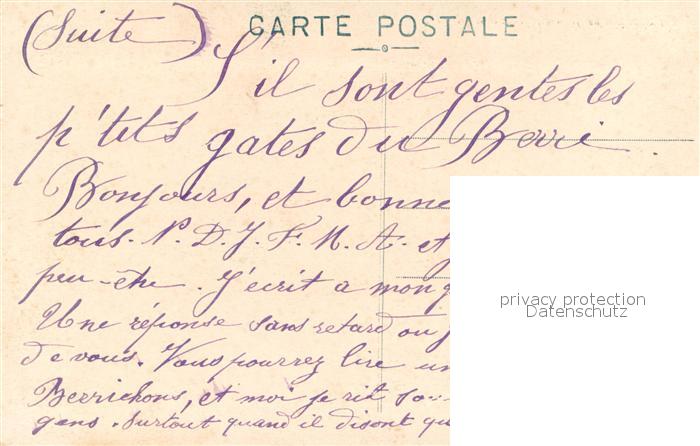 CARTE POSTALE
(Suite) S'il sont gentes les
p'tits gates du Berri
Bonjours, et bonne
tous. N. D. J. F. M. A. et
peu-être. J'écrit a mon
Une réponse sans retard ou
de vous. Vous pourrez lire un
Berrichons, et moi je rit
gens. Surtout quand il disont qu
privacy protection
Datenschutz